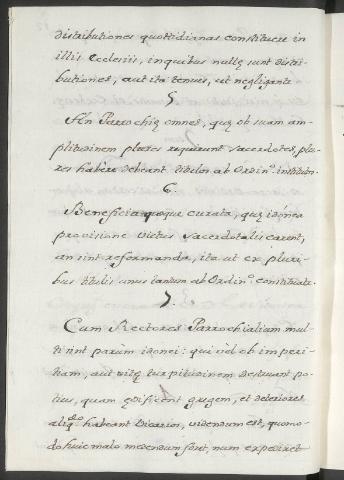 distributiones quottidianas constituere in
illis Ecclesiis, in quibus nullę sunt distri-
butiones, aut ita tenues, ut negligant~
5.
An Parrochię omnes, quę ob suam am-
plitudinem plures requirunt sacerdotes, plu-
res habere debeant titulos ab Ordin.º institutos.
6.
Beneficia quoque curata, quę idonea
provisione victus sacerdotalis carent,
an sint reformanda, ita ut ex pluri-
bus titulis unus tantum ab Ordin.º constituat~.
7.
Cum Rectores Parrochialium mul-
ti sint parùm idonei: qui vel ob imperi-
tiam, aut vitę turpitudinem destruant po-
tius, quam ędificent gregem, et deteriores
aliqdo habeant Vicarios, videndum est, quomo-
do huic malo medendum foret, num expediret